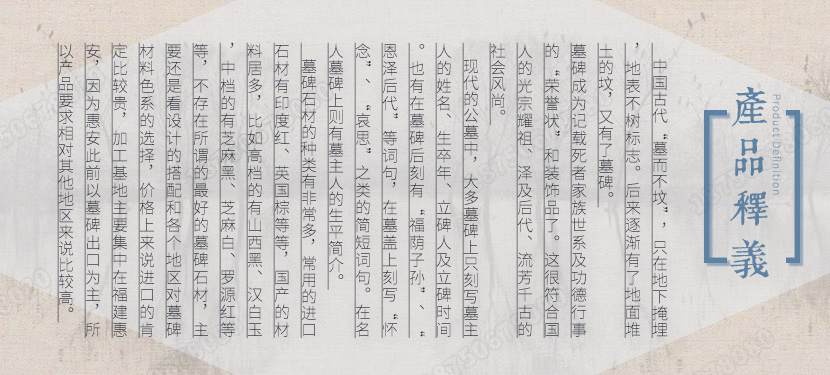 產品釋義
Product Definition
中国古代“墓而不坟”，只在地下掩埋
，地表不树标志。后来逐渐有了地面堆
土的坟，又有了墓碑。
墓碑成为记载死者家族世系及功德行事
的“荣誉状”和装饰品了。这很符合国
人的光宗耀祖、泽及后代、流芳千古的
社会风尚。
现代的公墓中，大多墓碑上只刻写墓主
人的姓名、生卒年、立碑人及立碑时间
。也有在墓碑后刻有“福荫子孙”、“
恩泽后代”等词句，在墓盖上刻写“怀
念”、“哀思”之类的简短词句。在名
人墓碑上则有墓主人的生平简介。
墓碑石材的种类有非常多，常用的进口
石材有印度红、英国棕等等，国产的材
料居多，比如高档的有山西黑、汉白玉
，中档的有芝麻黑、芝麻白、罗源红等
等，不存在所谓的最好的墓碑石材，主
要还是看设计的搭配和各个地区对墓碑
材料色系的选择，价格上来说进口的肯
定比较贵，加工基地主要集中在福建惠
安，因为惠安此前以墓碑出口为主，所
以产品要求相对其他地区来说比较高。